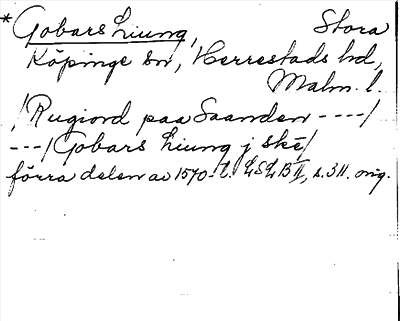 * Gobars Liung, Stora
Köpinge sn, Herrestads hd,
Malm. l.
/Rugiord paa Saanden ----/
---/Gobars Liung j ské/
förra delen av 1570-t. LSLB II, s. 311. orig.